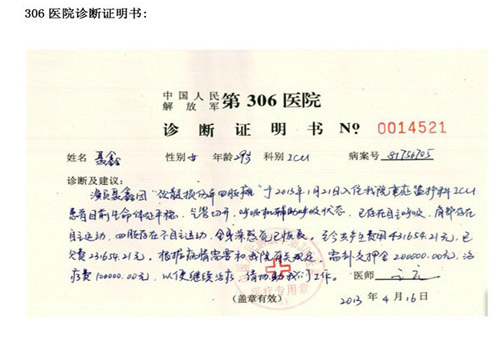 306 医院诊断证明书:
中国人民
解放军 第306医院
诊断证明书 No 0014521
姓名 聂鑫 性别 女 年龄 29岁 科别 ICU 病案号
诊断及建议:
于2013年1月21日入住我院 ICU
患者目前生命体征平稳, 气管切开, 呼吸机辅助呼吸状态, 已存在自主呼吸,
自主运动, 四肢存在不自主运动, 431654.21元, 已
欠费231654.21元. 根据病情需要和我院有关规定, 需补交押金200000.00元, 治
疗费100000.00元, 以便继续治疗, 请协助我们工作.
医疗专用章
医师
(盖章有效)
2013年4月16日